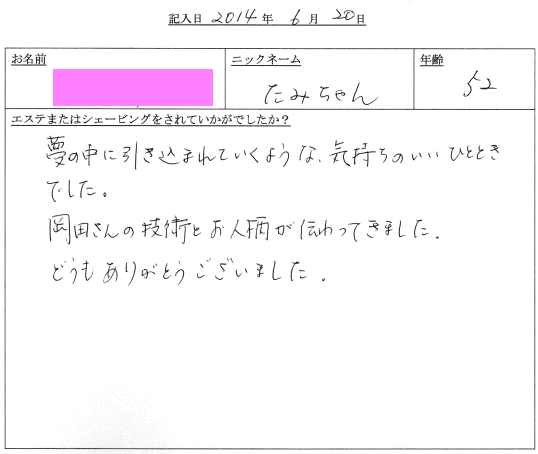 記入日 2014年 6月 20日
お名前 ニックネーム 年齢
たみちゃん 52
エステまたはシェービングをされていかがでしたか？
夢の中に引き込まれていくような、気持ちのいいひととき
でした。
岡田さんの技術とお人柄が伝わってきました。
どうもありがとうございました。